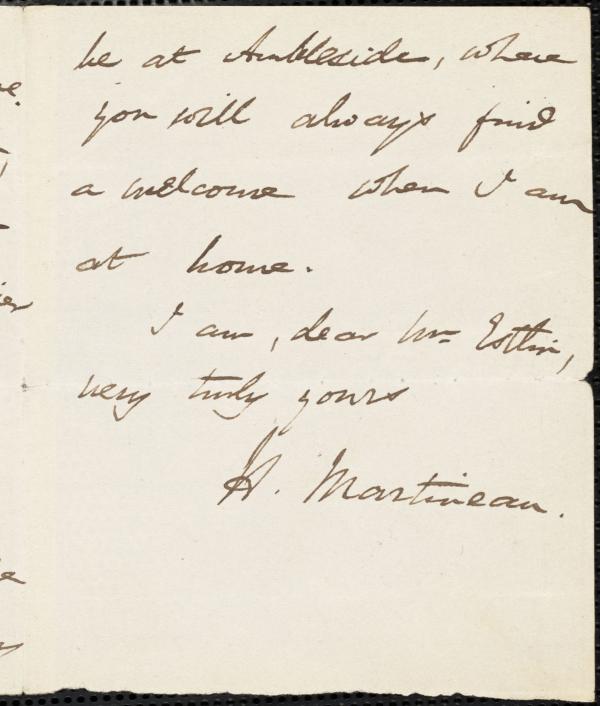 be at Ambleside, where
you will always find
a welcome when I am
at home.
I am, dear Mr. Estlin,
very truly yours
H. Martineau.